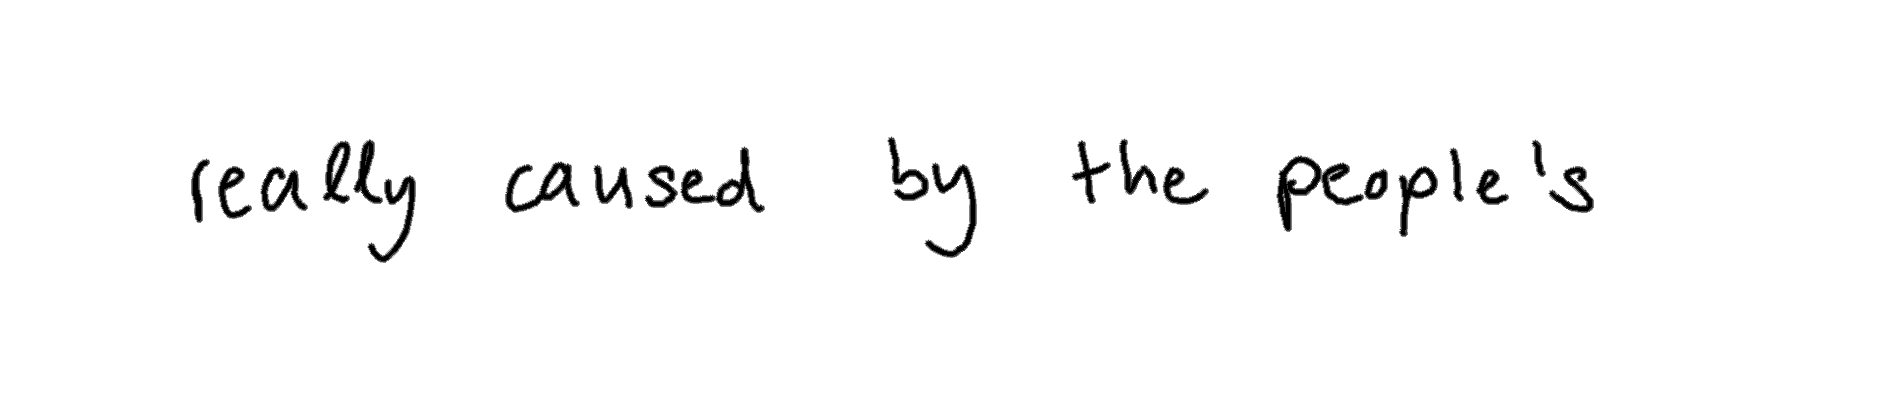 really caused by the people's